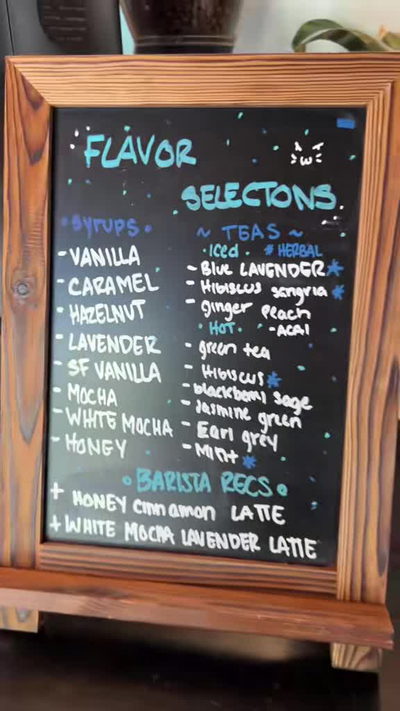 FLAVOR
SELECTONS.
• SYRUPS •
- VANILLA
- CARAMEL
- HAZELNUT
- LAVENDER
- SF VANILLA
- MOCHA
- WHITE MOCHA
- HONEY
~ TEAS ~
• Iced • * HERBAL
- BLUE LAVENDER *
- HIBISCUS SANGRIA *
- GINGER PEACH
• HOT • - ACAI
- green tea
- HIBISCUS *
- blackberry sage
- Jasmine green
- Earl grey
- MINT *
• BARISTA RECS •
+ HONEY CINNAMON LATTE
+ WHITE MOCHA LAVENDER LATTE